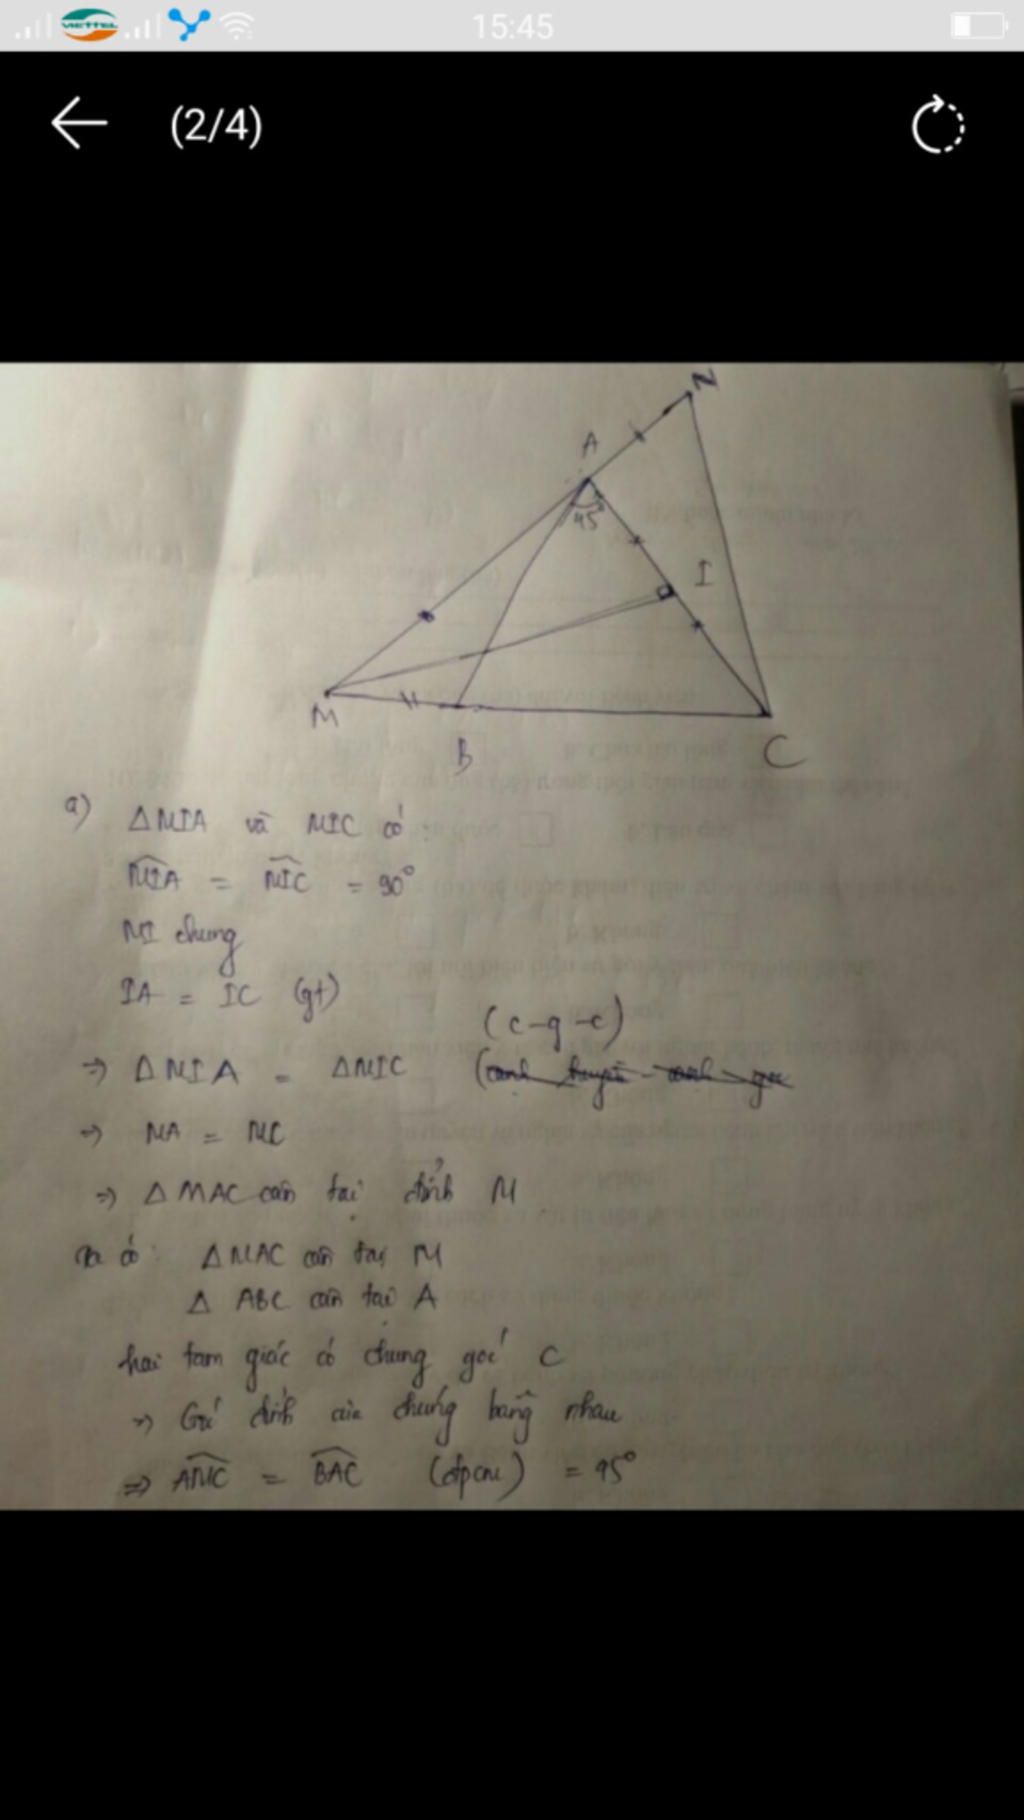 VIETTEL
15:45
(2/4)
N
A
45°
I
M
B
C
a) ΔMIA và MIC có:
MIA = MIC = 90°
MI chung
IA = IC (gt)
(c-g-c)
⇒ ΔMIA = ΔMIC
⇒ MA = MC
⇒ ΔMAC cân tại đỉnh M
có: ΔMAC cân tại M
Δ ABC cân tại A
hai tam giác có chung góc C
⇒ Góc đỉnh của chúng bằng nhau
⇒ AMC = BAC (đpcm) = 45°